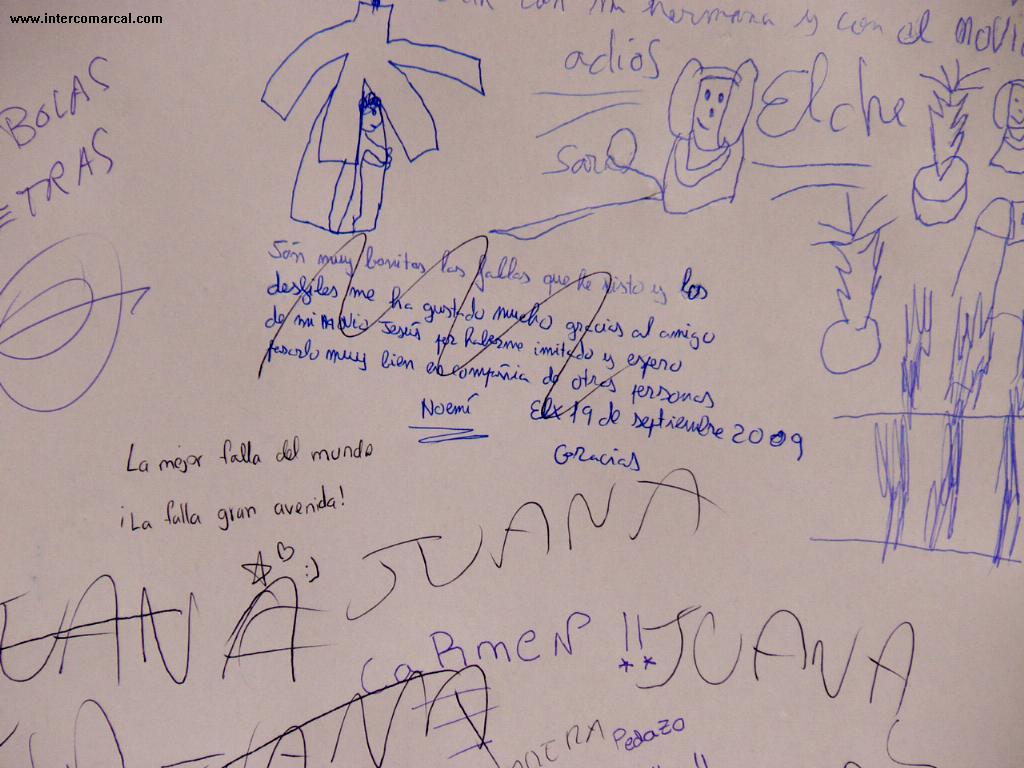 www.intercomarcal.com
con mi hermana y con el
adios
Elche
BOLAS
TRAS
Sara
Son muy bonitas las fallas que he visto y los
desfiles me ha gustado mucho gracias al amigo
de mi Jesús por haberme invitado y espero
pasarlo muy bien en compañia de otras personas
Noemí
Elx 19 de septiembre 2009
Gracias
La mejor falla del mundo
¡La falla gran avenida!
:)
JUANA
JUANA
CaRmeN !!
JUANA
Pedazo